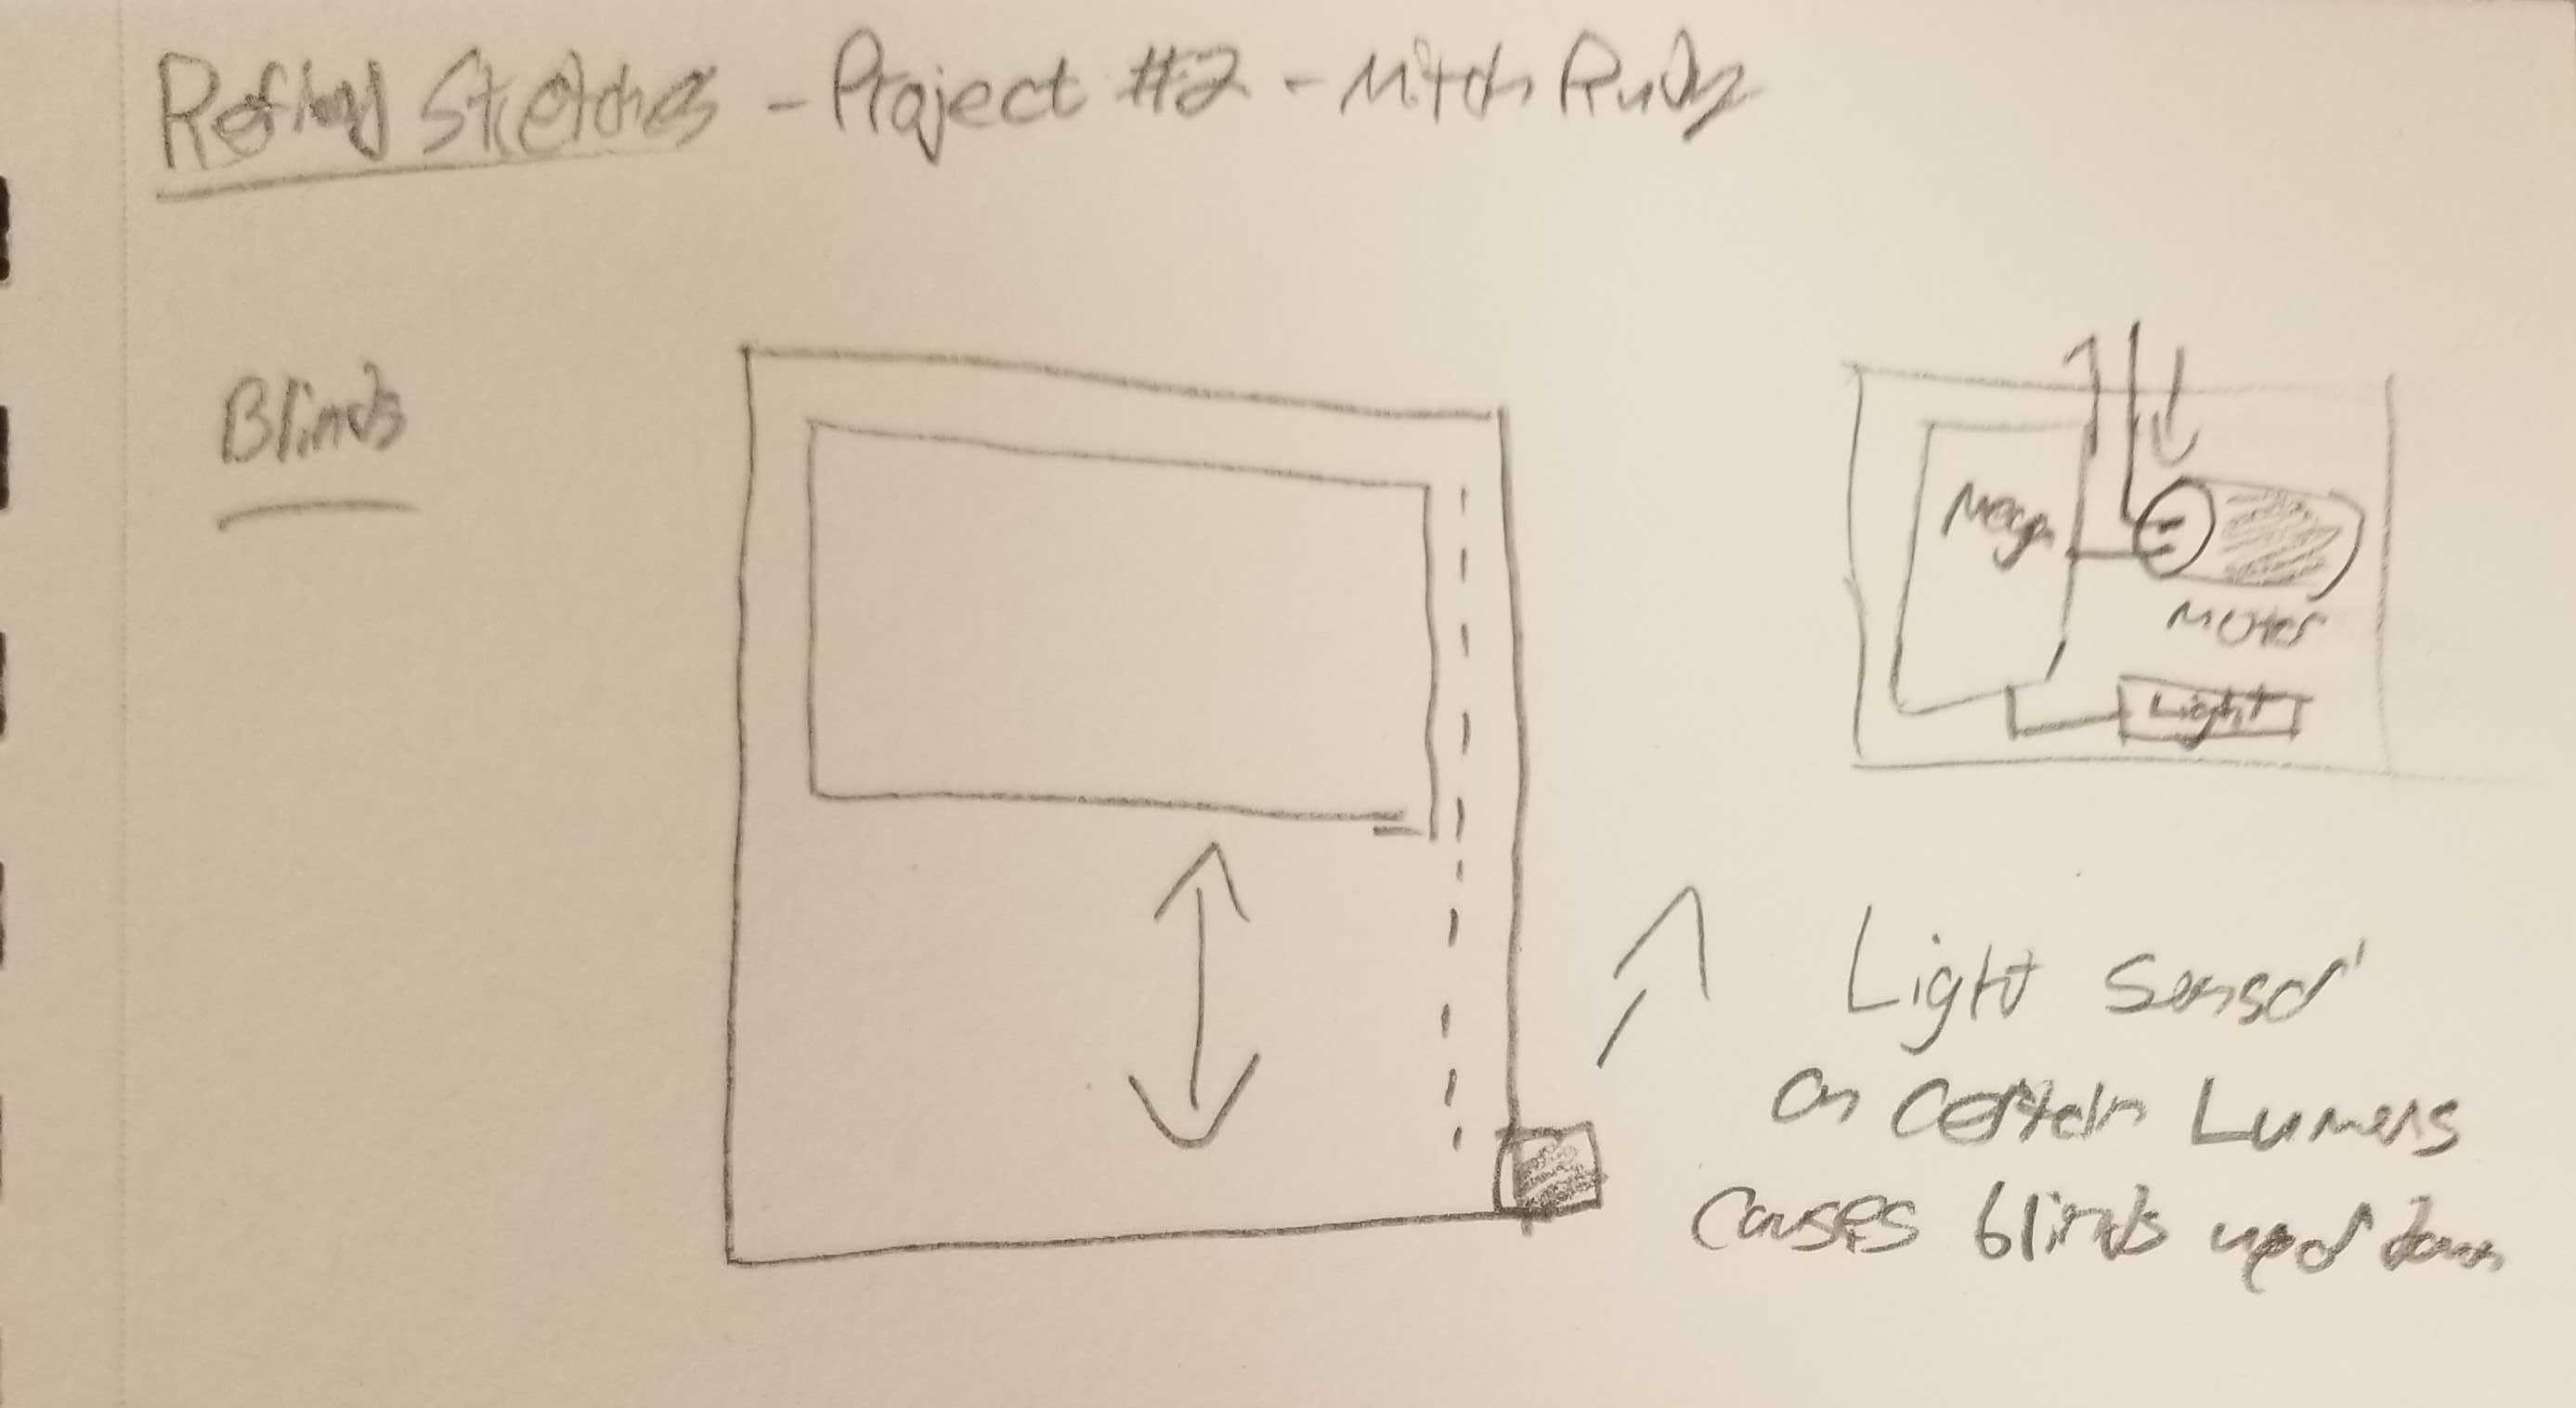 Refined Sketches - Project #2 - Mitch Rudy
Blinds
Mega
Motor
Light
Light Sensor
on certain Lumens
causes blinds up or down